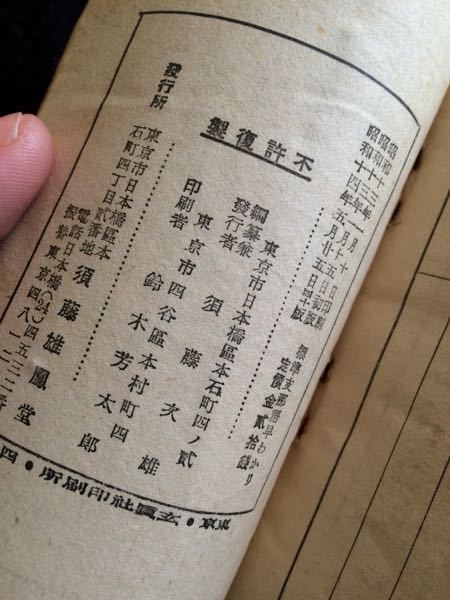 昭和十三年一月十日印刷
昭和十三年一月十五日初版
昭和十四年五月廿五日四十版
標準支那語早わかり
定價金貳拾錢
不許復製
東京市日本橋區本石町四ノ貳
編纂兼
發行者
須藤次雄
東京市四谷區本村町四
印刷者
鈴木芳太郎
發行所
東京市日本橋區本
石町四丁目貳番地
須藤雄鳳堂
電話日本橋
振替東京
東京・玄眞社印刷所・四